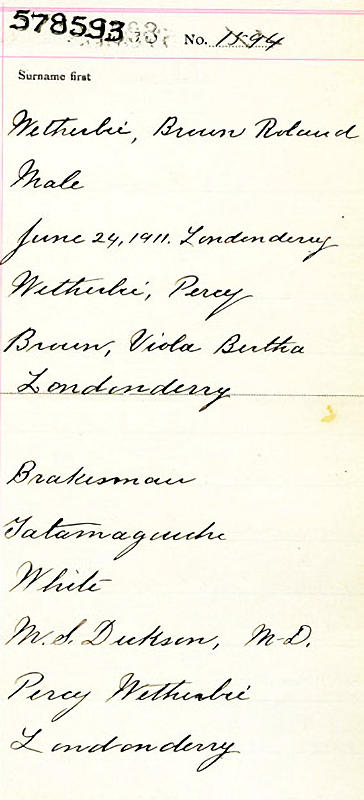 578593 No. 1594
Surname first
Wetherbie, Brown Roland
Male
June 24, 1911. Londonderry
Wetherbie, Percy
Brown, Viola Bertha
Londonderry
Brakesman
Tatamagouche
White
M. S. Dickson, M-D.
Percy Wetherbie
Londonderry